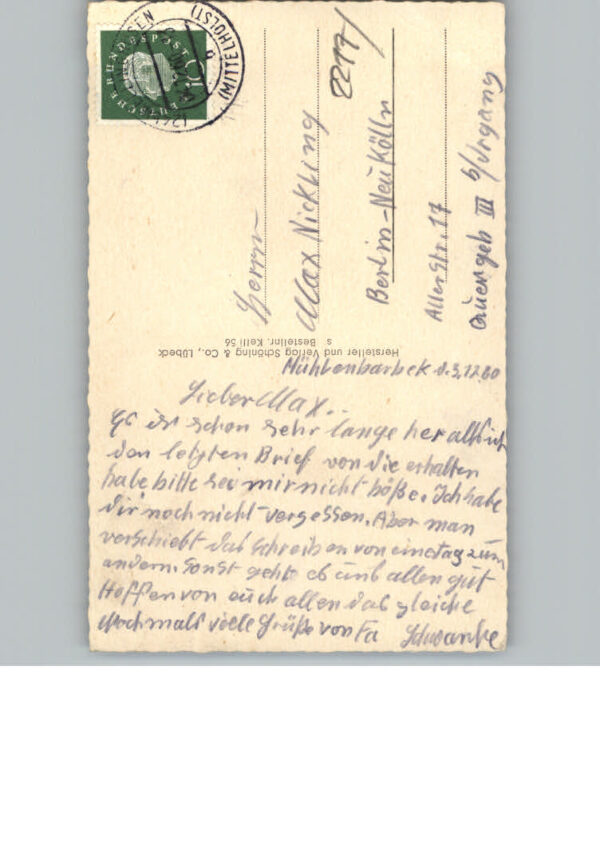 DEUTSCHE BUNDESPOST
(MITTELHOLST)
2217/
Herrn
Max Nickling
Berlin-Neukölln
Allerstr. 17
Quergeb III b/Urgang
Hersteller und Verlag Schöning & Co., Lübeck
s Bestellnr. Kelli 56
Mühlenbarbek d.3.12.60
Lieber Max..
Es ist schon sehr lange her alls ich
den letzten Brief von die erhalten
habe bitte sei mir nicht böße. Ich habe
Dir noch nicht vergessen. Aber man
verschiebt das Schreiben von eine tag zum
andern. Sonst geht es uns allen gut
Hoffen von euch allen das gleiche
Nochmals viele Grüße von Fa Schwanke